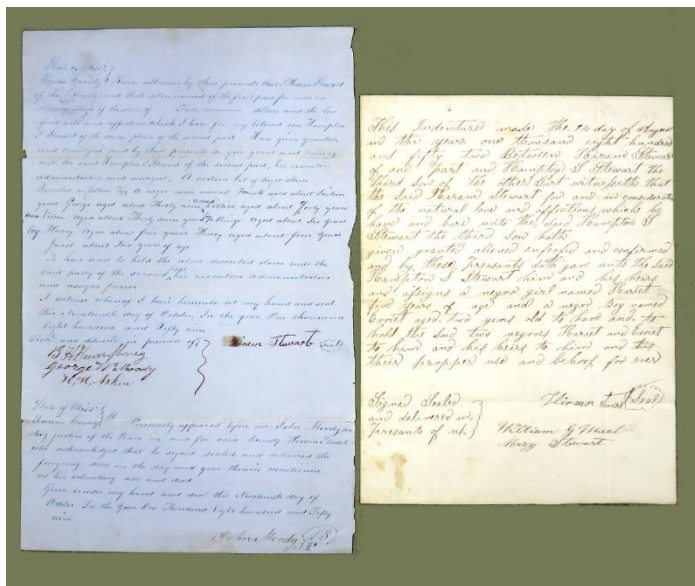 State of Miss
County Know all men by these presents that I Hiram Stewart
of the County and State above named of the first part for and in
consideration of the sum of dollars and the love
good will and affection which I have for my beloved son Hampton
J Stewart of the same place of the second part Have given granted
and conveyed and by these presents do give grant and convey
unto the said Hampton J Stewart of the second part, his executors
administrators and assigns, A certain lot of negro slaves
described as follows viz A negro man named Frank aged about
years George aged about Thirty nine aged about forty years
aged about Thirty nine years aged about Six Years
boy Harry Aged about five years Henry aged about four Years
Jacob about Two Years of age
To have and to hold the above described slaves unto the
said party of the second part his executors administrators
and assigns forever
In witness whereof I have hereunto set my hand and seal
this Nineteenth day of October, In the year One thousand
eight hundred and Fifty nine
in presence of Hiram Stewart (Seal)
B F Humphrey
George W Moody
State of Miss
County Personally appeared before me John Moody an
acting justice of the Peace in and for said County Hiram Stewart
who acknowledged that he signed sealed and delivered the
foregoing deed on the day and year therein mentioned
as his voluntary act and deed
Given under my hand and seal this Nineteenth day of
October In the Year One Thousand Eight hundred and Fifty
nine
John Moody
This Indenture made the day of August
in the year one thousand eight hundred
and fifty two Between Hiram Stewart
of one part and Hampton J Stewart the
third Son of the other part witnesseth that
the said Hiram Stewart for and in consideration
of the natural love and affection which he
hath and bare unto the said Hampton J
Stewart the third Son hath
given granted aliened enfeoffed and confirmed
and by these Presants doth give unto the said
Hampton J Stewart him and his heirs
and assigns a negro girl named Hariet
five years of age and a negro Boy named
aged two years old to have and to
hold the said two negroes Hariet and
to him and his heirs to him and
there propper use and behoof for ever
Signed Sealed
and delivered in
Presants of us
Hiram Stewart (Seal)
William G Neal
Mary Stewart